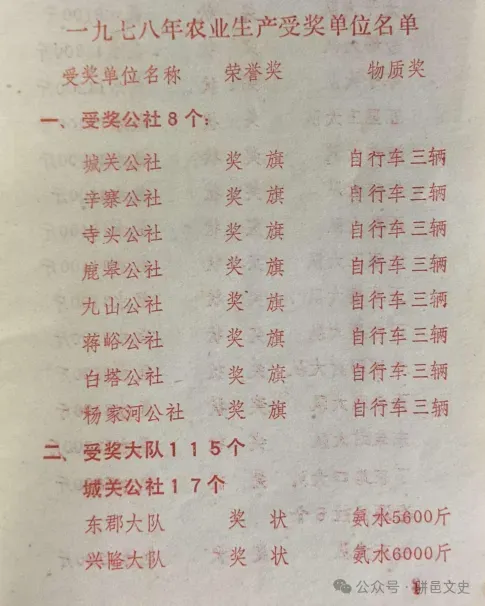 一九七八年农业生产受奖单位名单
受奖单位名称 荣誉奖 物质奖
一、受奖公社8个：
城关公社 奖旗 自行车三辆
辛寨公社 奖旗 自行车三辆
寺头公社 奖旗 自行车三辆
鹿皋公社 奖旗 自行车三辆
九山公社 奖旗 自行车三辆
蒋峪公社 奖旗 自行车三辆
白塔公社 奖旗 自行车三辆
杨家河公社 奖旗 自行车三辆
二、受奖大队115个
城关公社17个
东郡大队 奖状 氨水5600斤
兴隆大队 奖状 氨水6000斤
公众号·骈邑文史